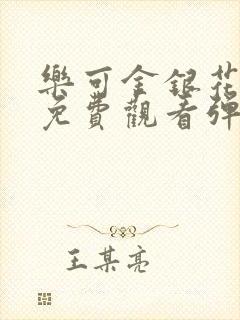 樂可金銀花
免費觀看彈
王某亮